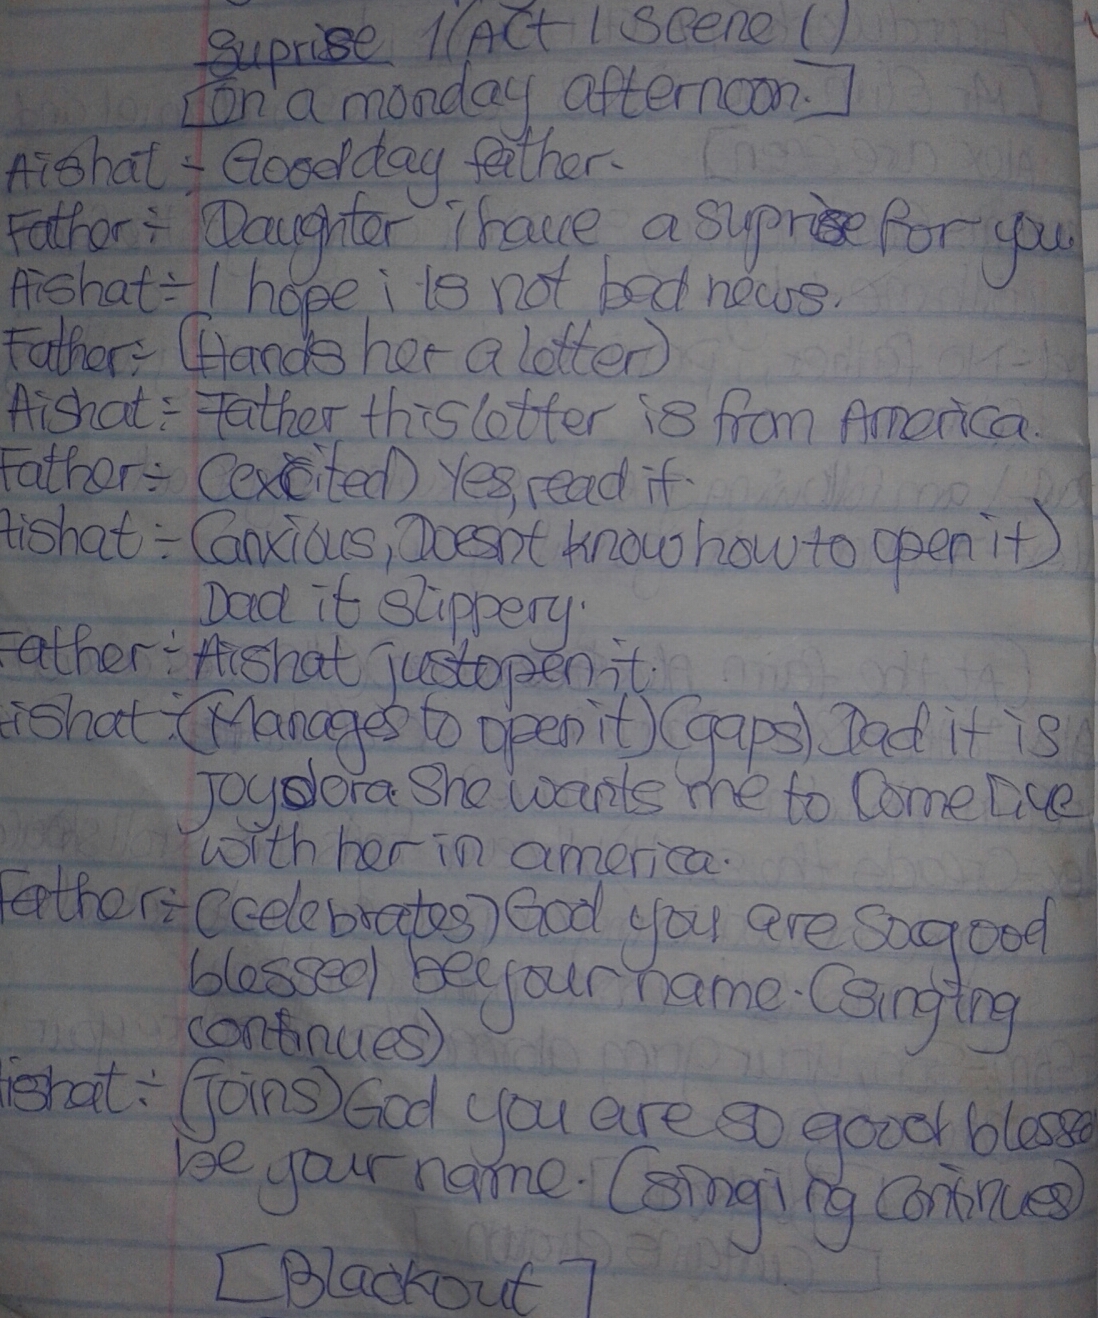 Suprise 1(Act 1 Scene 1)
[On a monday afternoon.]
Aishat:- Goodday father.
Father:- Daughter i have a suprise for you
Aishat:- I hope i is not bad news.
Father:- (Hands her a letter)
Aishat:- Father this letter is from America.
Father:- (excited) Yes, read it.
Aishat:- (anxious, Doesnt know how to open it)
Dad it slippery.
Father:- Aishat just open it.
ishat:- (Manages to open it) (gaps) Dad it is
Joydora. She wants me to Come Live
with her in america.
Father:- (celebrates) God you are so good
blessed be your name. (singing
continues)
ishat:- (Joins) God you are so good blesse
be your name. (singing continues)
[Blackout]